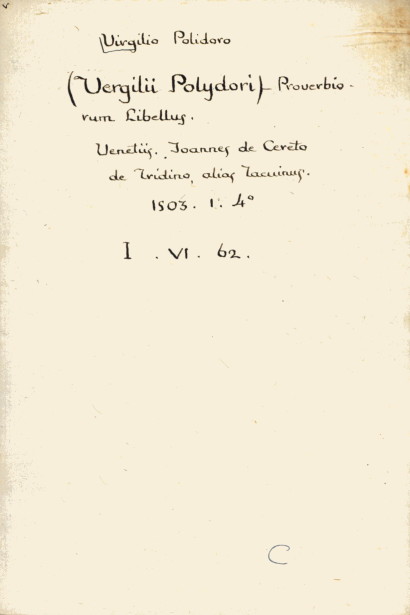 Virgilio Polidoro
(Vergilii Polydori) Proverbio-
rum Libellus.
Venetiis. Joannes de Cereto
de Tridino, alias Tacuinus.
1503. 1. 4°
I . VI . 62.
C